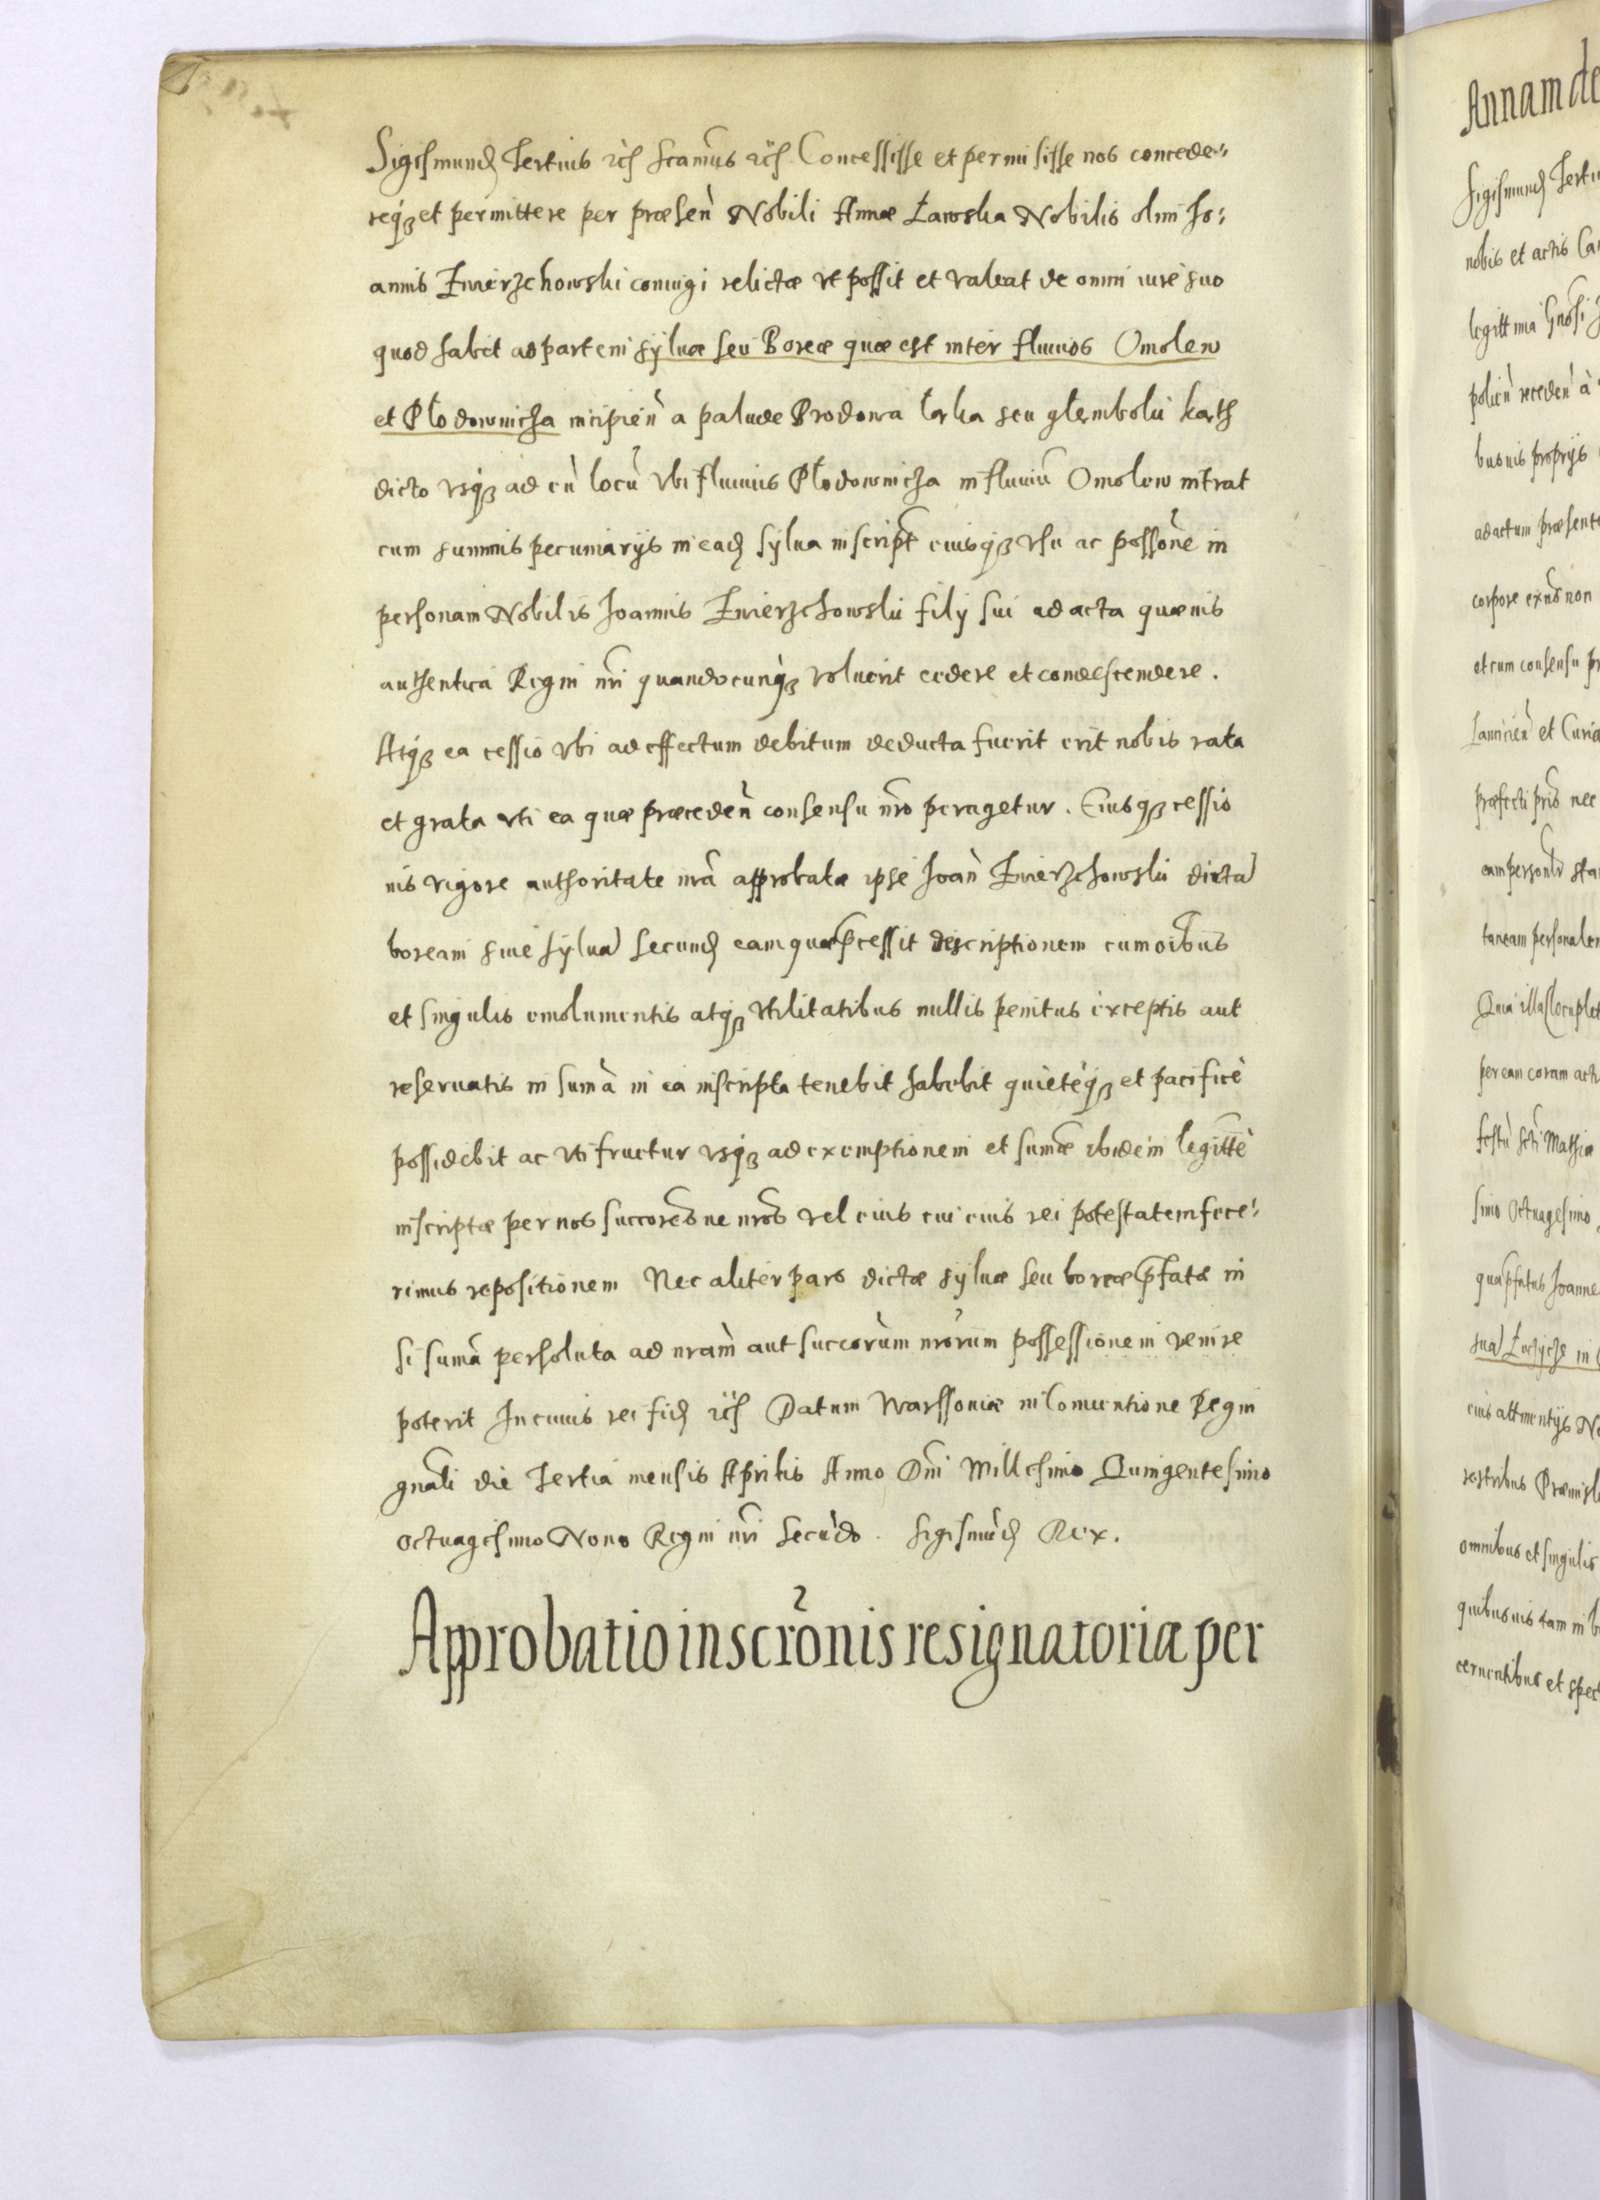 Sigismund9 Tertius rc̃ scamus rc̃ Concessisse et permisisse nos concede=
req3 et permittere per præsen̄ Nobili Annæ Ławska Nobilis olim Jo=
annis Zwierzchowski coniugi relictæ vt possit et valeat de omni iure suo
quod habet ad partem syluæ seu Boreæ quæ est inter fluuios Omolew
et Płodownicza incipien̄ a palude Brodowa łąka seu głemboki kąth
dicto vsq3 ad eū locū vbi fluuius Płodownicza in fluuiū Omolew intrat
cum summis pecuniarijs in ead9 sylua inscript̄ eiusq3 vsu ac possōne in
personam Nobilis Joannis Zwierzchowski filij sui ad acta quæuis
authentica Regni nri quandocunq3 voluerit cedere et condescendere.
Atq3 ea cessio vbi ad effectum debitum deducta fuerit erit nobis rata
et grata vti ea quæ præceden̄ consensu nro peragetur. Eiusq3 cessio
nis vigore authoritate nrā approbatæ ipse Joan̄ Zwierzchowski dictā
boream siue syluā secund9 eam quæ p̄cessit descriptionem cum oibus
et singulis emolumentis atq3 vtilitatibus nullis penitus exceptis aut
reseruatis in sumā in ea inscripta tenebit habebit quietèq3 et pacificè
possidebit ac vti fruetur vsq3 ad exemptionem et sumæ ibidem legittè
inscriptæ per nos succoresne nros vel eius cui eius rei potestatem fece=
rimus repositionem Nec aliter pars dictæ syluæ seu boreæ p̄fatæ ni
si sumā persoluta ad nram aut succorum nrorum possessionem venire
poterit In cuius rei fid9 rc̃ Datum Warssouiæ in Conuentione Regni
gnāli die Tertia mensis Aprilis Anno Dni Millesimo Quingentesimo
octuagesimo Nono Regni nri secūdo. Sigismūd9 Rex.
Approbatio inscrōnis resignatoriæ per
Annam de
Sigismund9 Terti
nobis et actis Ca
legittima
polien̄ receden̄ à
busuis proprijs
ad actum præsent
corpore existens non
et cum consensu
et Curia
præfecti nec
taneam personalem
per eam coram actis
festū scti Mathiæ
simo Octuagesimo
qua p̄fatus Joanne
in
eius attinentijs
omnibus et singulis
quibusuis tam in
cernentibus et spect